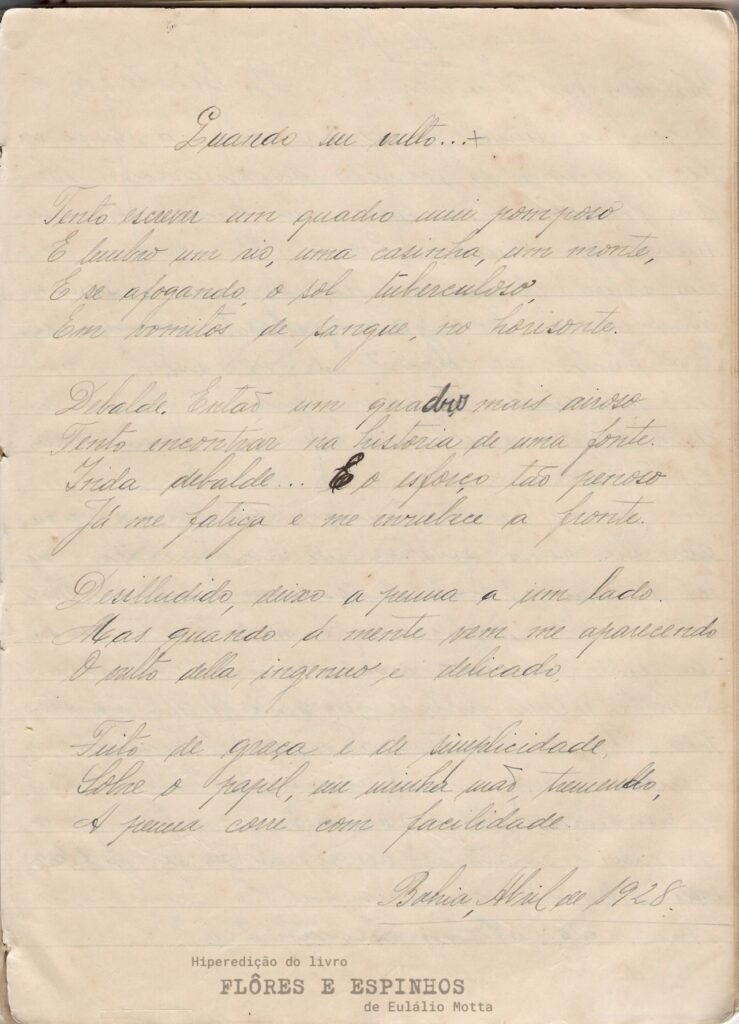 Quando seu vulto...+
Tento escrever um quadro mui pomposo
E lembro um rio, uma casinha, um monte,
E se afogando, o sol tuberculoso,
Em vomitos de sangue, no horisonte.
Debalde. Então um quadro mais airoso
Tento encontrar na historia de uma fonte.
Inda debalde... E o esforço tão penoso
Já me fatiga e me enrubece a fronte.
Desilludido, deixo a penna a um lado.
Mas quando á mente vem me aparecendo
O vulto della, ingenuo e delicado,
Feito de graça e de simplicidade,
Sobre o papel, em minha mão, tremendo,
A penna corre com facilidade.
Bahia, Abril de 1928.
Hiperedição do livro
FLÔRES E ESPINHOS
de Eulálio Motta